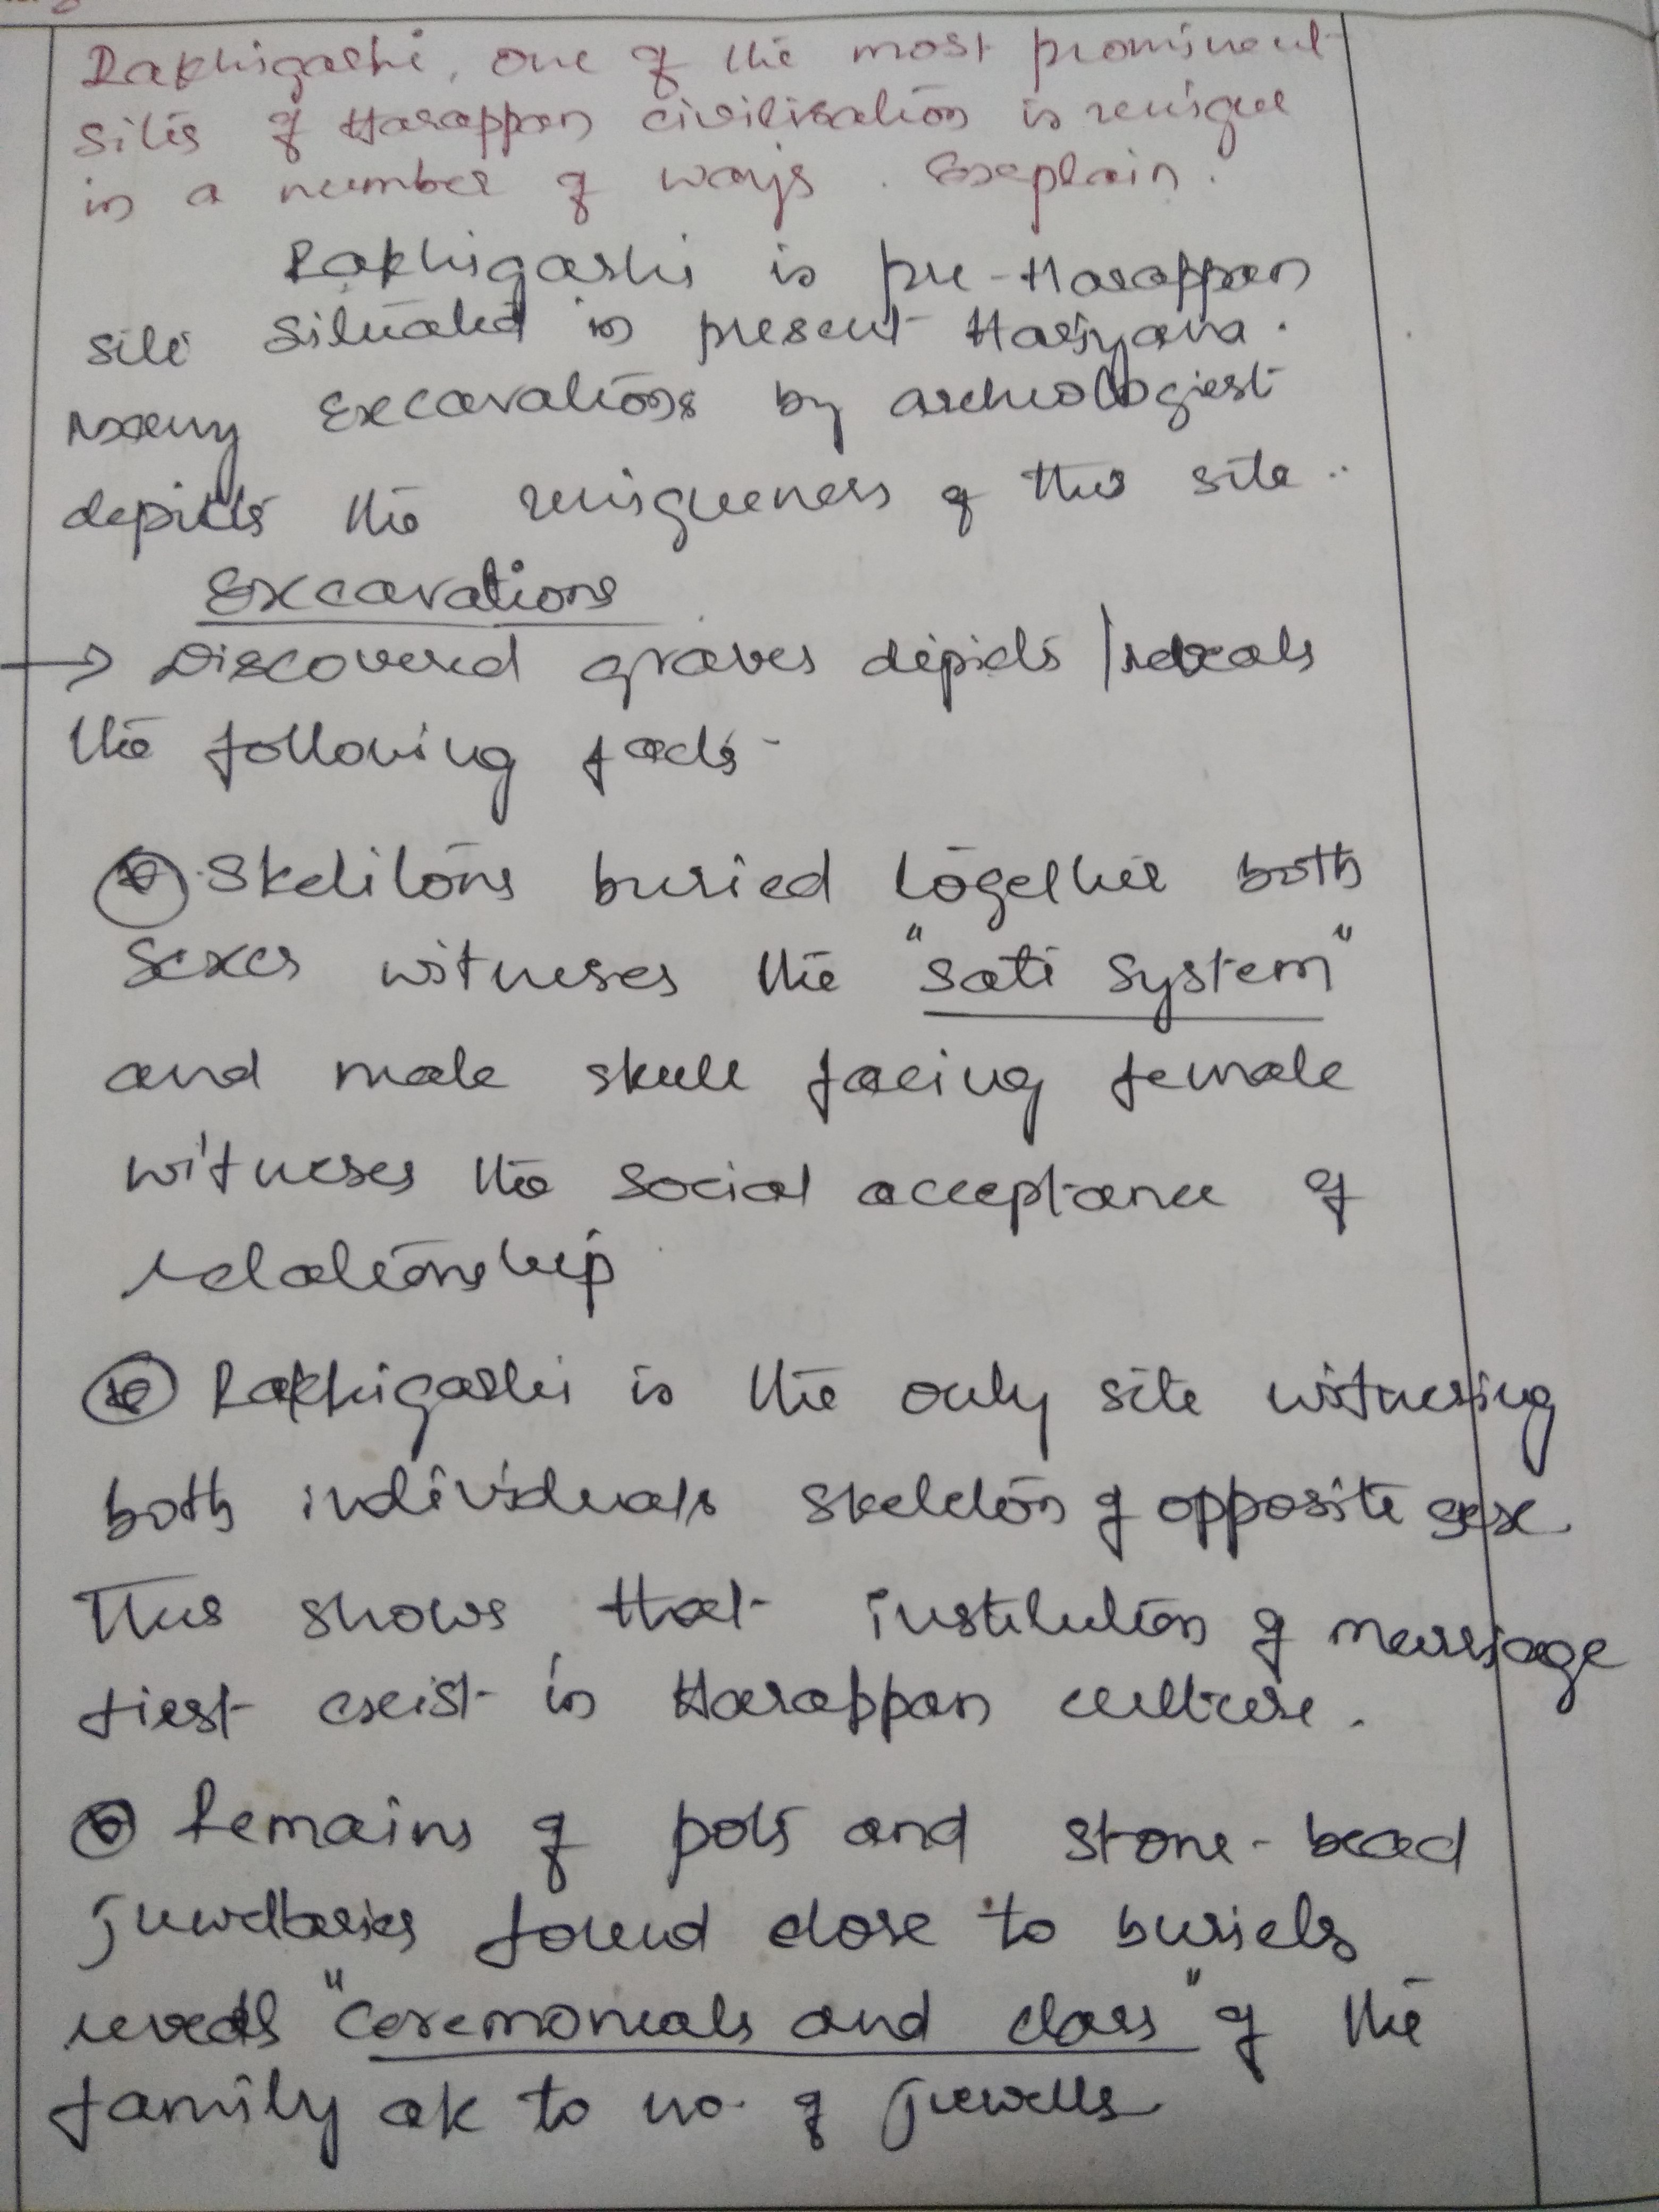 Rakhigarhi, one of the most prominent
sites of Harappan civilisation is unique
in a number of ways. Explain.
Rakhigarhi is pre-Harappan
site situated in present Hariyana.
Many Excavations by archeologiest
depicts the uniqueness of this site..
Excavations
→ Discovered graves depicts / reveals
the following facts-
Skelitons buried together both
sexes witneses the "sati system"
and male skull facing female
witneses the social acceptance of
relationship
Rakhigarhi is the only site witnesing
both individuals skeleton of opposite sex
This shows that institution of marriage
first exist in Harappan culture.
Remains of pots and stone-bead
juwellaries found close to buriels
reveals "ceremonials and class" of the
family ak to no. of juwells